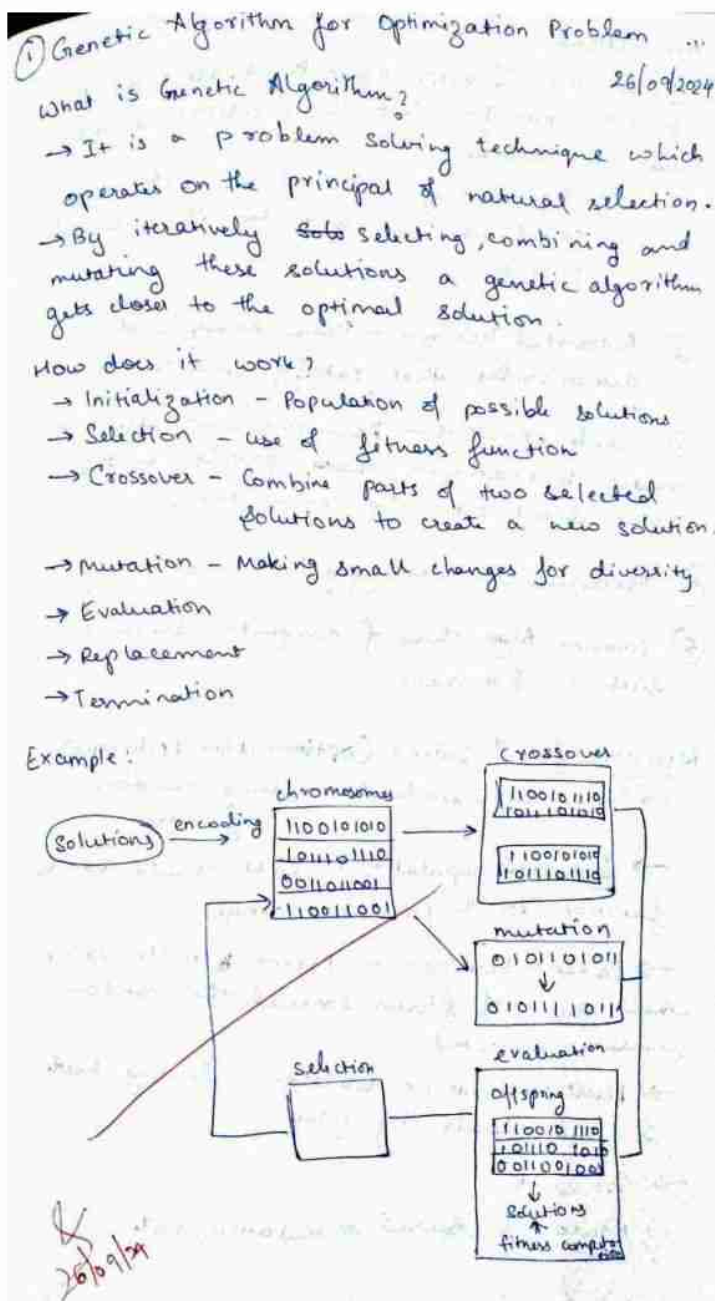 ① Genetic Algorithm for Optimization Problem ...
26/09/2024
What is Genetic Algorithm?
→ It is a problem solving technique which
operates on the principal of natural selection.
→ By iteratively selecting, combining and
mutating these solutions a genetic algorithm
gets closer to the optimal solution.
How does it work?
→ Initialization - Population of possible solutions
→ Selection - use of fitness function
→ Crossover - Combine parts of two selected
solutions to create a new solution.
→ Mutation - Making small changes for diversity
→ Evaluation
→ Replacement
→ Termination
Example:
Solutions
encoding
chromosomes
1100101010
1011101110
0011011001
110011001
crossover
1100101110
1011101010
1100101010
1011101110
mutation
0101101011
↓
0101111011
selection
evaluation
offspring
110010 1110
101110 1010
001100100
↓
solutions
↑
fitness
26/09/24